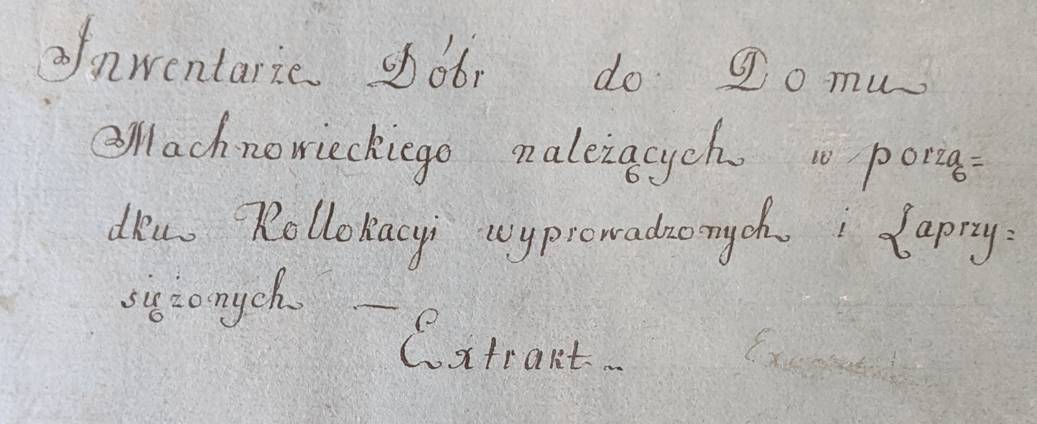 Inwentarże Dóbr do Domu
Machnowieckiego należących w porzą=
dku Kollokacyi wyprowadzonych i Zaprzy=
siężonych —
Extrakt